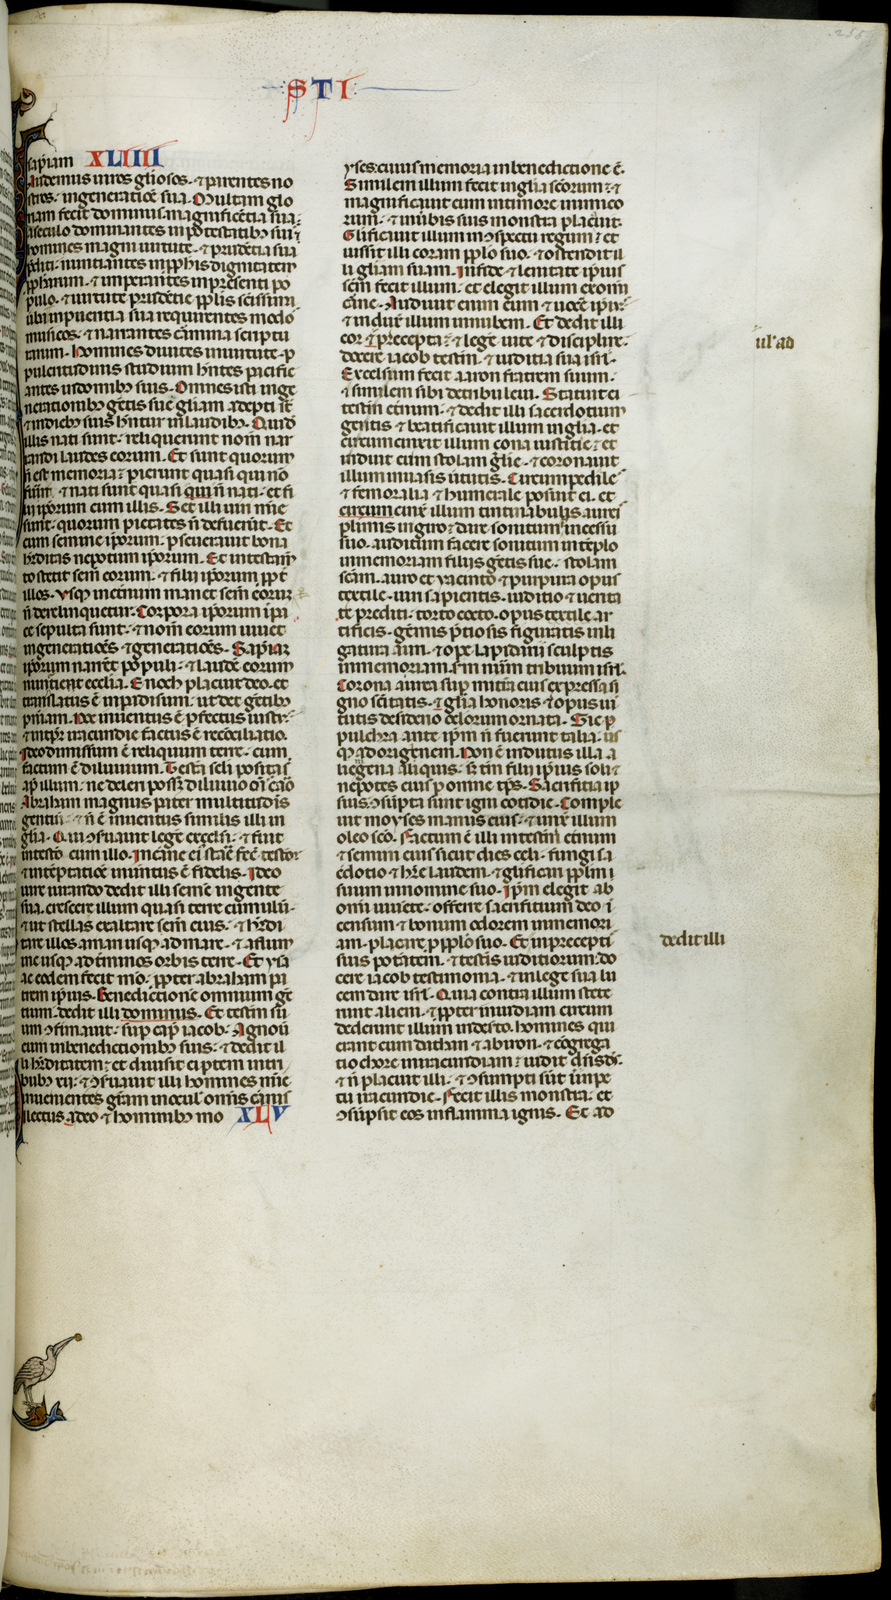 STI
sapiam XLIIII
Laudemus uiros gl̄iosos · ⁊ parentes no
stros · ingeneratiōe sua · Multam glo
riam fecit dominus magnificētia sua
a seculo dominantes inpotestatibꝫ suis
homines magni uirtute · ⁊ prudētia sua
p̄diti · nuntiantes inpphis dignitatem
pphetarum · ⁊ imperātes inpresenti po
pulo · ⁊ uirtute prudētie pplis sc̄issima
uerba inpueritia sua requirentes modos
musicos · ⁊ narrantes carmina scriptu
rarum · homines diuites inuirtute · p
pulcritudinis studium hn̄tes pacific
antes indomibꝫ suis · Omnes isti inge
nerationibꝫ gētis sue gl̄iam adepti sūt
⁊ indiebꝫ suis hn̄tur inlaudibꝫ · Qui de
illis nati sunt · reliquerunt nom̄ nar
randi laudes eorum · Et sunt quorum
n̄ est memoria · perierunt quasi qui nō
fuerint · ⁊ nati sunt quasi qui n̄ nati · et fi
lii ip̄orum cum illis · Set illi uiri m̄ie
sunt · quorum pietates n̄ defuerūt · Et
cum semine ip̄orum · pseuerant bona
h̄editas nepotum ip̄orum · Et intestam̄
to stetit sem̄ eorum · ⁊ filii ip̄orum ppt̄
illos · usqꝫ inet̄num manet sem̄ eorum
n̄ derelinquetur · Corpora ip̄orum ī pa
ce sepulta sunt · ⁊ nom̄ eorum uiuet
ingeneratiōes ⁊ generatiōes · Sapiam
ip̄orum narrēt populi · ⁊ laudē eorum
nuntiet ecclīa · Enoch placuit deo · et
translatus ē inparadisum · ut det gētibꝫ
pn̄iam · Noe inuentus ē pfectus iustus
⁊ intp̄r iracundie factus ē reconciliatio
Ideo dimissum ē reliquium terre · cum
factum ē diluuium · Testa seli posita st
ap̄ illum · ne deleri poss̄ diluuio ōis caro
Abraham magnus pater multitudīs
gentium · ⁊ n̄ ē inuentus similis illi in
gl̄ia · Qui ꝯseruauit legē excelsi · ⁊ fuit
intesto cum illo · Incarne ei' staē fec̄ testor
⁊ intēptatiōe inuentus ē fidelis · Ideo
iure iurando dedit illi semē ingente
sua · crescere illum quasi terre cumulū
⁊ ut stellas exaltare sem̄ eius · ⁊ h̄redi
tare illos amari usqꝫ admare · ⁊ aflumi
ne usqꝫ adt̄minos orbis terre · Et ysa
ac eodem fecit mō · ppter abraham pa
trem ip̄ius · Benedictionē omnium gē
tium · dedit illi dominus · Et testm̄ su
um ꝯfirmauit · sup caput iacob · Agnouit
eum inbenedictionibꝫ suis · ⁊ dedit il
li h̄editatem · et diuisit ei ptem intri
bubꝫ xii · ⁊ ꝯseruauit illi homines m̄ie
inuenientes gr̄am inocul' omīs carnis
ilectus adeo ⁊ hominibꝫ mo XLV
yses cuius memoria inbenedictione ē ·
Similem illum fecit ingl̄ia sc̄orum · ⁊
magnificauit eum intimore inimico
rum · ⁊ inuerbis suis monstra placauit ·
Glificauit illum inꝯspectu regum · et
iussit illi coram pplo suo · ⁊ ostendit il
li gl̄iam suam · Infide · ⁊ lenitate ip̄ius
sc̄m fecit illum · et elegit illum exomni
carne · Audiuit enim eum · ⁊ uocē ip̄ius
⁊ induxit illum innubem · Et dedit illi
cor ⁊ precepta · ⁊ legē uite ⁊ discipline ·
docere iacob testm̄ · ⁊ iuditia sua isrl̄ ·
Excelsum fecit aaron fratrem suum ·
⁊ similem sibi detribu leui · Statuit ei
testm̄ et̄num · ⁊ dedit illi sacerdotium
gentis ⁊ beatificauit illum ingl̄ia · et
circumcinxit illum cona iustitie · et
induit eum stolam gl̄ie · ⁊ coronauit
illum inuasis uirtutis · Circumpedile
⁊ femoralia ⁊ humerale posuit ei · et
circumcinx̄ illum tintinabulis aureis
plurimis ingiro · dare sonitum incessu
suo · auditum facere sonitum intēplo
inmemoriam filiis gētis sue · Stolam
sc̄am · auro et yacinto ⁊ purpura opus
textile · uiri sapientis · iuditio ⁊ uerita
te prediti · torto cocto · opus textile ar
tificis · gēmis p̄tiosis figuratis inli
gatura auri · ⁊ ope lapidarii sculptis
inmemoriam · sm̄ num̄ tribuum isrl̄ ·
Corona aurea sup mitrā eius expressa si
gno scītatis · ⁊ gl̄ia honoris · ⁊ opus uir
tutis desiderio oclorum ornata · Sic p
pulchra ante ip̄m n̄ fuerunt talia · us
qꝫ adorigenem · Non ē indutus illa a
liegena aliquis · s; tm̄ filii ip̄ius soli ⁊
nepotes eius p omne tp̄s · Sacrifitia ip
sius ꝯsūpta sunt igni cotidie · Comple
uit moyses manus eius · ⁊ unx̄ illum
oleo sc̄o · Factum ē illi intestm̄ et̄num
⁊ semini eius sicut dies celi · fungi sa
c̄dotio ⁊ h̄re laudem · ⁊ glificari pplm̄
suum innomine suo · Ip̄m elegit ab
omni uiuente · offerre sacrifitium deo ī
censum ⁊ bonum odorem inmemori
am · placare p pplo suo · Et inprecepti
suis potatem · ⁊ testīs iuditiorum · do
cere iacob testimonia · ⁊ inlege sua lu
cem dare isrl̄ · Quia contra illum stete
runt alieni · ⁊ ppter inuidiam circum
dederunt illum indesto · homines qui
erant cum dathan ⁊ abiron · ⁊ cōgrega
tio chore iniracundiam · uidit dn̄s ds̄ ·
⁊ n̄ placuit illi · ⁊ ꝯsumpti sūt inīpe
tu iracundie · Fecit illis monstra · et
ꝯsūpsit eos inflamma ignis · Et ad
ul' ad
dedit illi